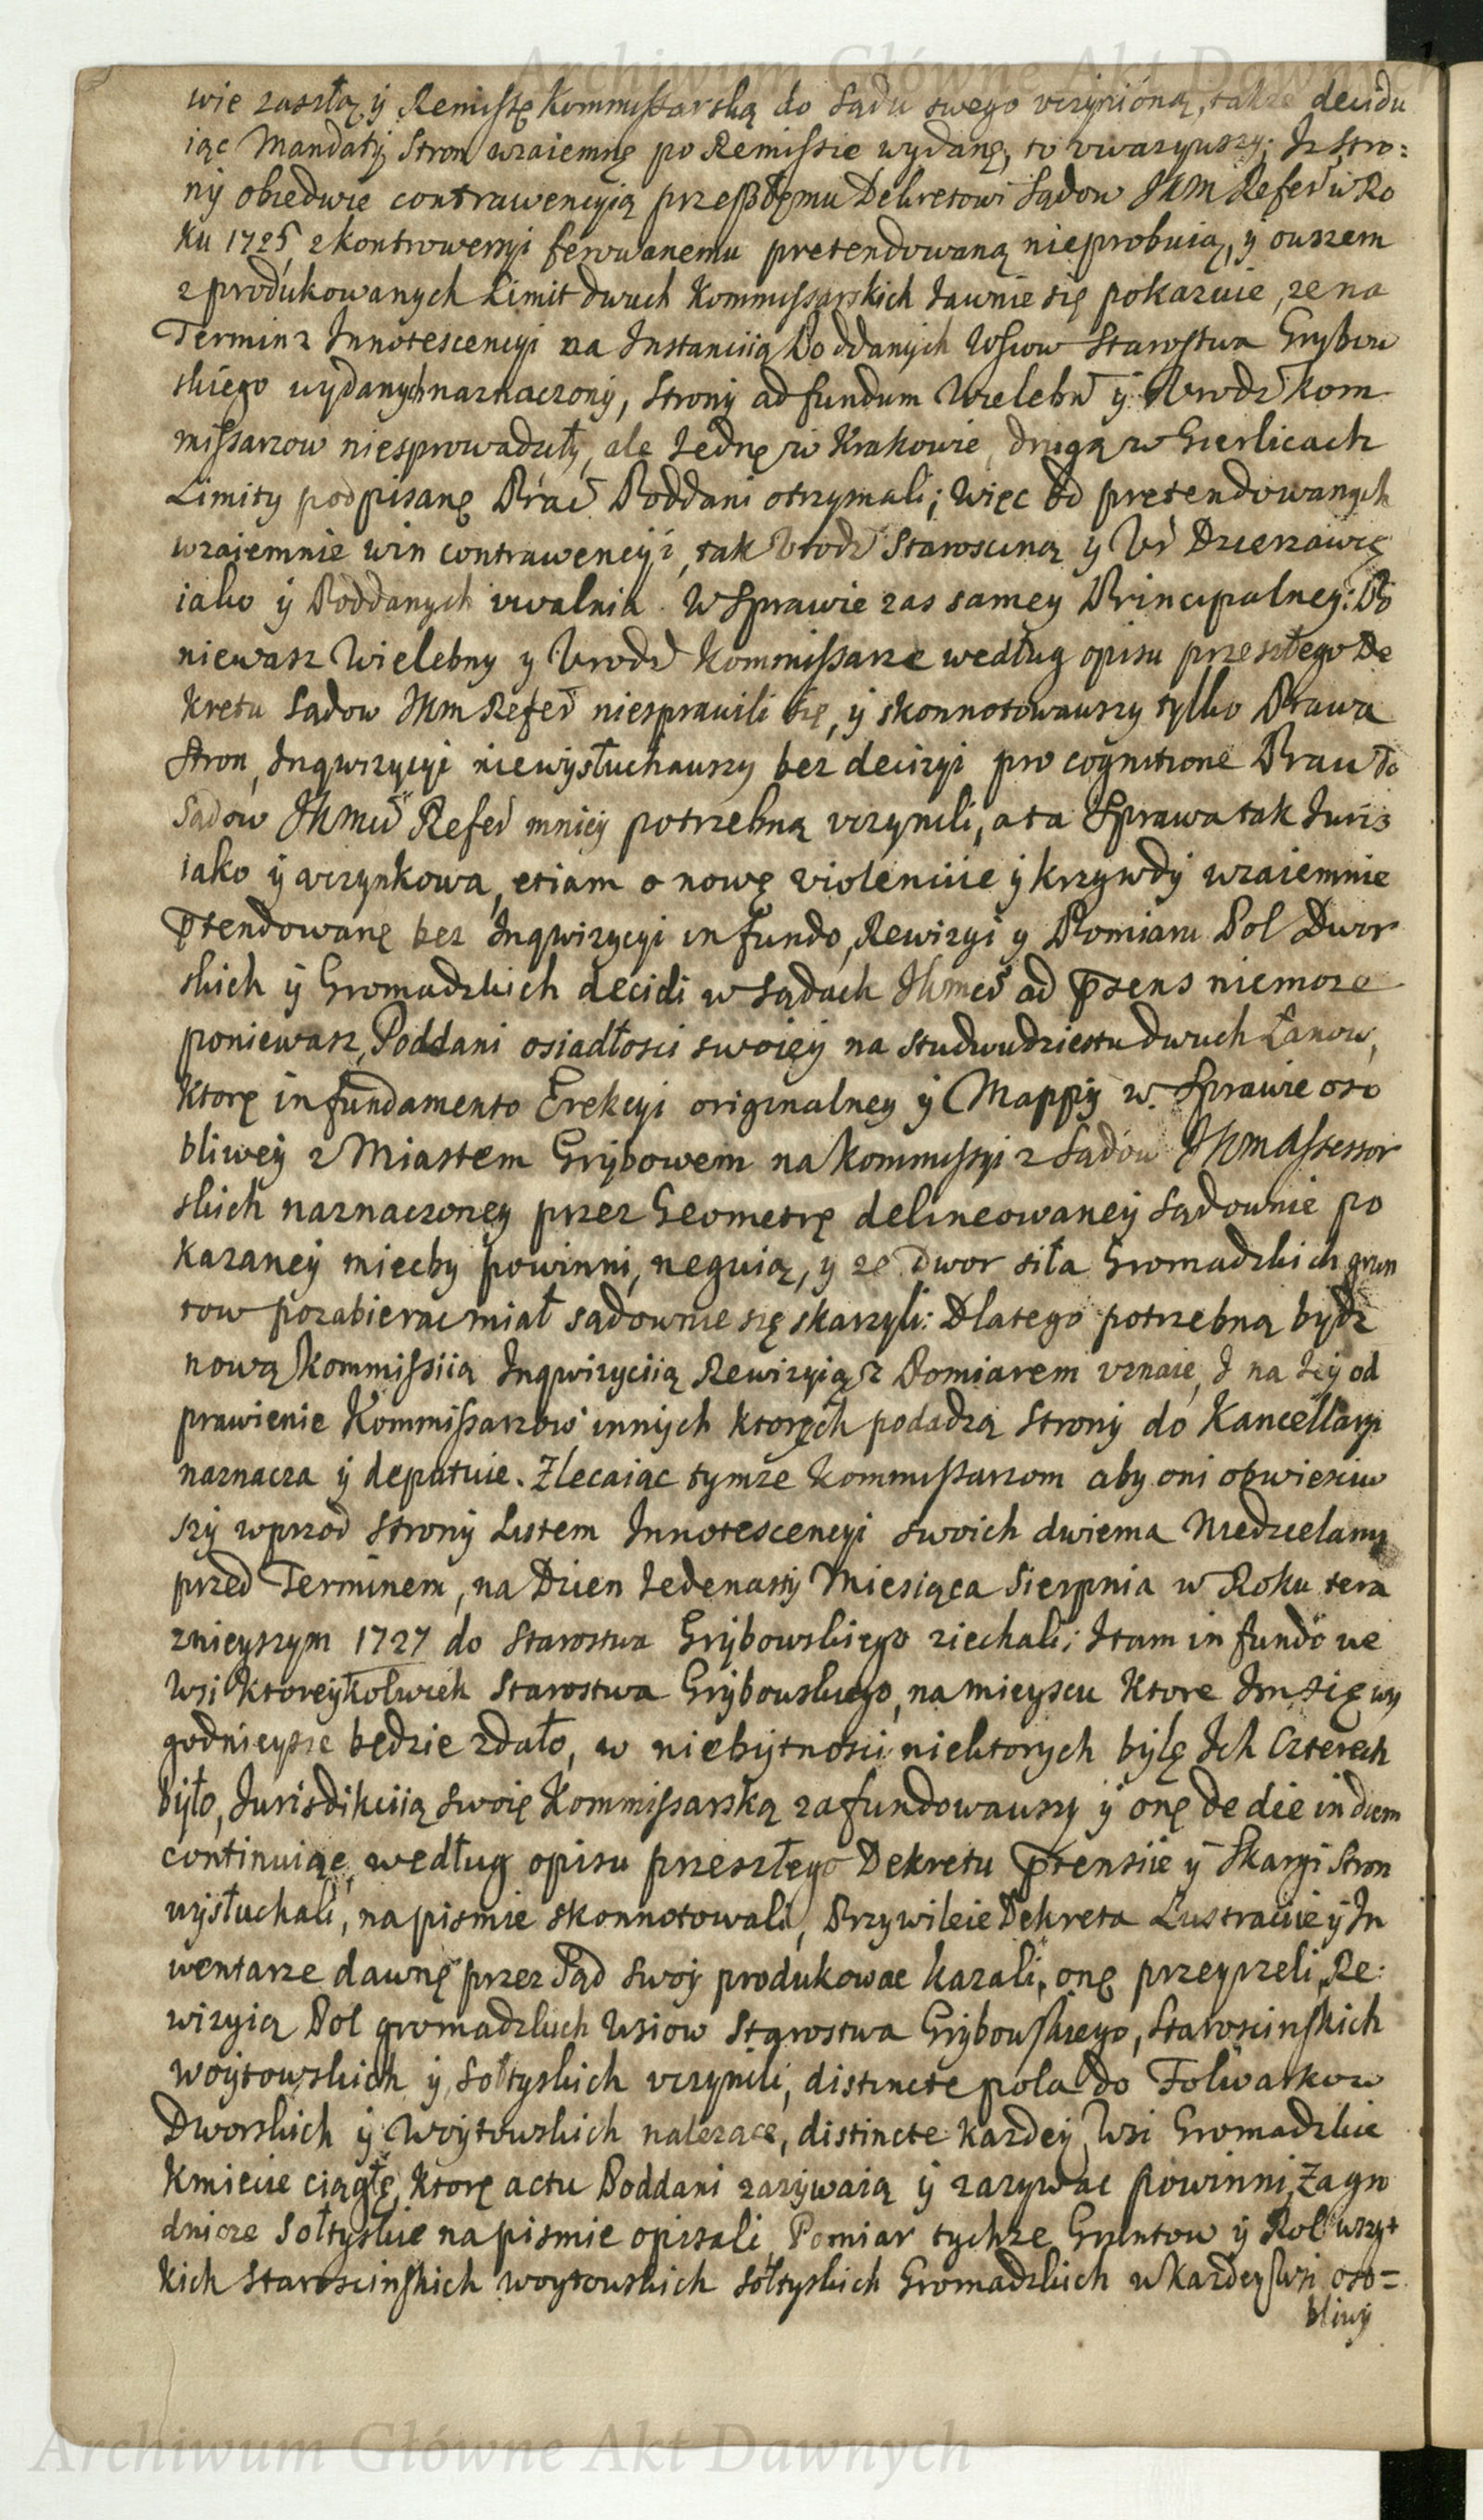 Archiwum Główne Akt Dawnych
wie zaszłą, ÿ Remissę Kommissarską do Sądu swego vczynióną, także decidu
iąc Mandatÿ Stron wzaiemnę po Remissie wydanę, to vwazÿwszy; Iz Stro=
nÿ obiedwie contrawencyią przeszłęmu Dekretowi Sądow JKM Refer w Ro
ku 1725 z kontrowersyi ferowanemu pretendowaną nieprobuią, y owszem
z produkowanych Limit dwuch Kommissarskich Iawnie się pokazuie, ze na
Termin z Innotescencyi na Instanciią Poddanÿch Wsiow Starostwa Grybow
skiego wydanych naznaczonÿ, Stronÿ ad fundum Wielebn ÿ Vrodz Kom
missarzow niesprowadziłÿ, ale Iednę w Krakowie, drugą w Gierlicach
Limity podpisanę Prac Poddani otrzymali; Więc od pretendowanych
wzaiemnie win contrawencyi, tak Vrodz Staroscinę y Vr Dzierzawcę
iako ÿ Poddanych vwalnia. W Sprawie zas samey Principalney: Po
niewasz Wielebny y Vrodz Kommissarze według opisu przeszłego De
kretu Sądow JKM Refer niesprawili się, ÿ skonnotowawszy tylko Prawa
Stron, Inqwizycyi niewysłuchawszy bez decizyi pro cognitione Praw do
Sądow JKMci Refer mniey potrzebną vczynili, a ta Sprawa tak Iuris
iako ÿ vczynkowa, etiam o nowę violenciie ÿ krzywdÿ wzaiemnie
ptendowanę bez Inqwizycyi in fundo, Rewizyi y Pomiaru Pol Dwor
skich ÿ Gromadzkich decidi w Sądach JKMci ad psens niemoze
poniewasz, Poddani osiadłosci swoieÿ na studwudziestu dwuch Łanow,
ktorę in fundamento Erekcyi originalney ÿ Mappÿ w Sprawie oso
bliwey z Miastem Grÿbowem na Kommissyi z Sądow JKM Assessor
skich naznaczoney przez Geometrę delineowaneÿ Sądownie po
kazaneÿ miecby powinni, neguią, y ze Dwor siła Gromadzkich grun
tow pozabierac miał sądownie się skarzyli: Dlatego potrzebną bydz
nową Kommissiią Inqwizyciią Rewizyią z Pomiarem vznaie, I na teÿ od
prawienie Kommissarzow innÿch ktorÿch podadzą Stronÿ do Kancellaryi
naznacza ÿ deputuie. Zlecaiąc tymze Kommissarzom aby oni obwiesciw
szÿ wprzod Stronÿ Listem Innotescencyi swoich dwiema Niedzielamy
przed Terminem, na Dzien Iedenastÿ Miesiąca Sierpnia w Roku tera
znieyszym 1727 do Starostwa Grÿbowskiego ziechali; I tam in fundo we
Wsi ktoreykolwiek Starostwa Grÿbowskiego, na mieyscu ktore Im się wy
godnieysze będzie zdało, w niebÿtnosci niektorych bÿlę Ich Czterech
bÿło, Iurisdikciią swoię Kommissarską zafundowawszy ÿ onę de die in diem
continuiąc, według opisu przeszłego Dekretu ptensiie ÿ Skargi Stron
wysłuchali, na pismie skonnotowali, Przywileie Dekreta Lustracie ÿ In
wentarze dawnę przez Sąd swoy produkowac kazali, onę przeyrzeli, Re:
wizyią Pol gromadzkich Wsiow Starostwa Grÿbowskiego, Staroscinskich
woytowskich ÿ sołtyskich vczynili, distincte pola do Folwarkow
Dworskich ÿ Woytowskich nalezące, distincte kazdeÿ Wsi Gromadzkie
Kmiecie ciągłę, ktorę actu Poddani zazÿwaią ÿ zazywac powinni, Zagro
dnicze Sołtyskie na pismie opisali, Pomiar tychze Gruntow ÿ Rol wszyt
kich Staroscinskich woytowskich sołtyskich Gromadzkich w kazdey Wsi oso=
bliwÿ
Archiwum Główne Akt Dawnych